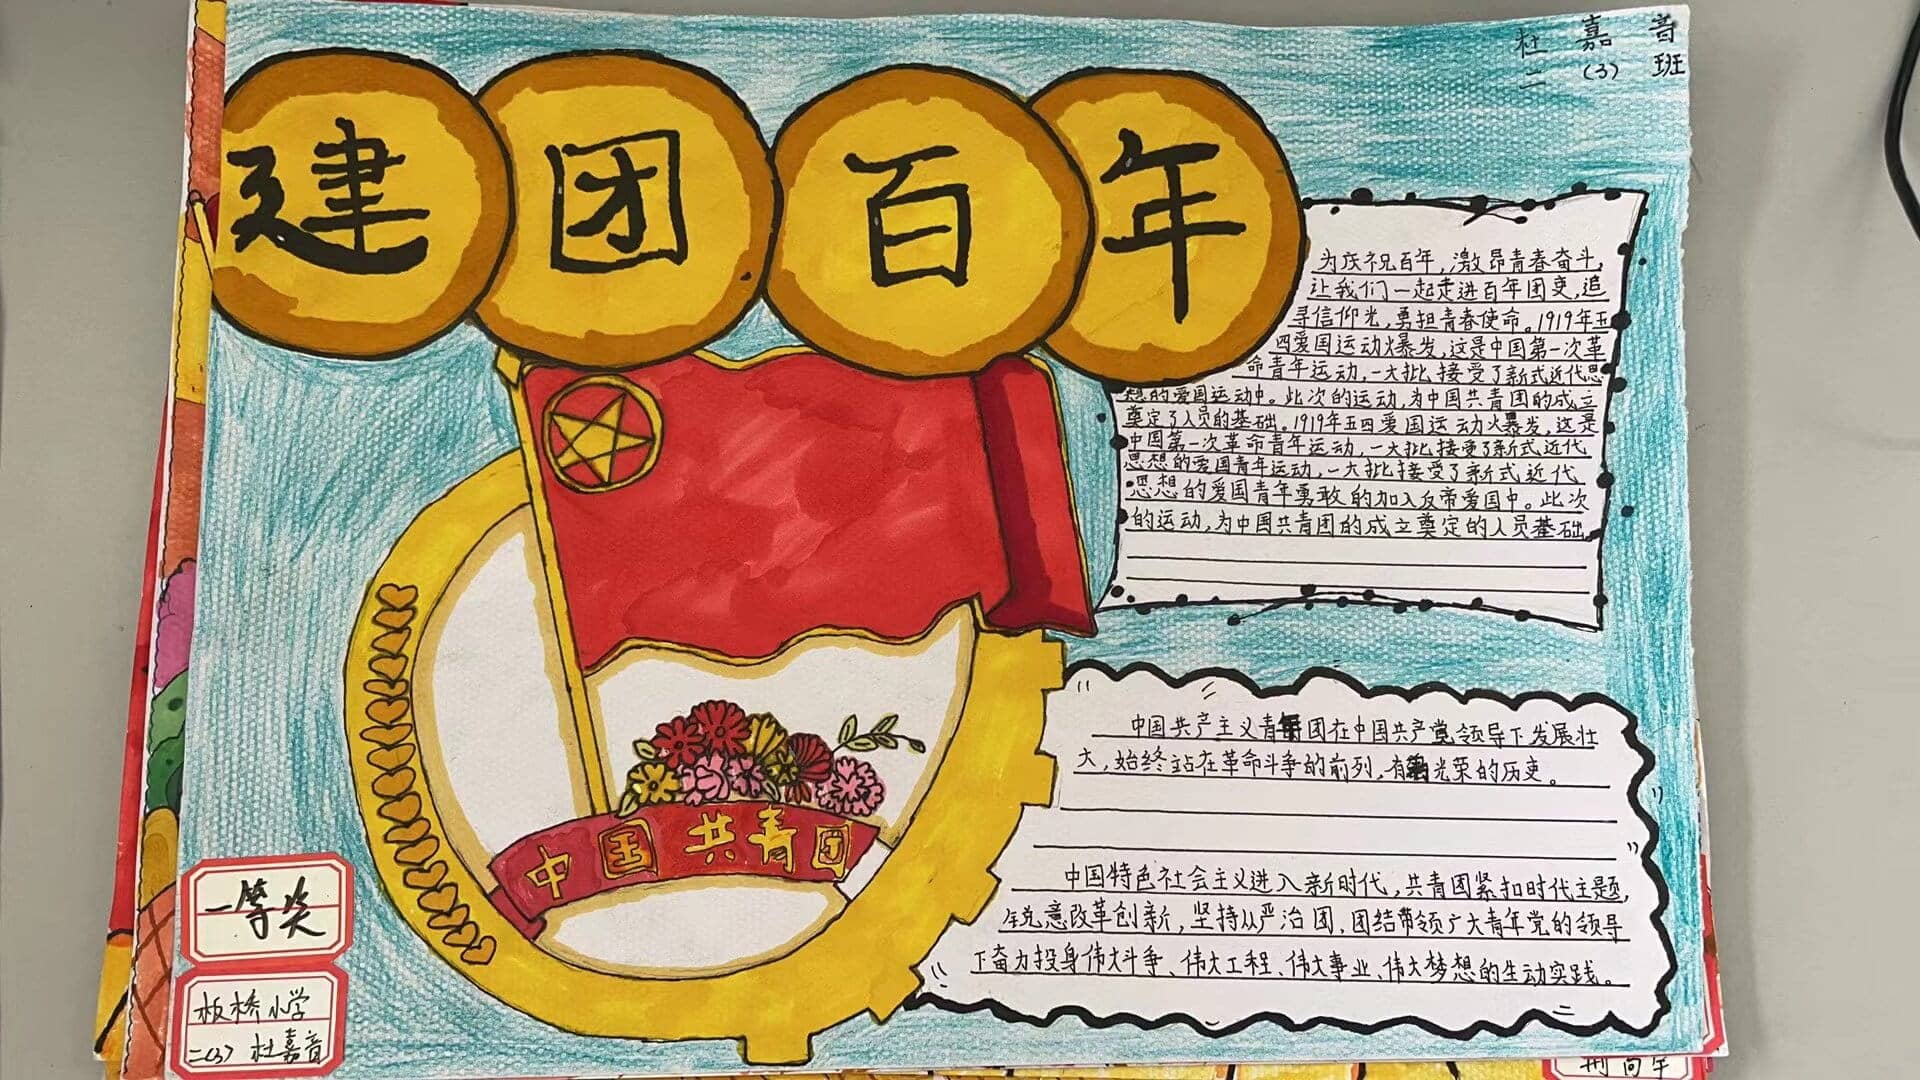 杜嘉音
二(3)班
建团百年
为庆祝百年,激昂青春奋斗,
让我们一起走进百年团史,追
寻信仰光,勇担青春使命。1919年五
四爱国运动爆发,这是中国第一次革
命青年运动,一大批接受了新式近代思
想的爱国运动中。此次的运动,为中国共青团的成立
奠定了人员的基础。1919年五四爱国运动爆发,这是
中国第一次革命青年运动,一大批接受了新式近代
思想的爱国青年运动,一大批接受了新式近代
思想的爱国青年勇敢的加入反帝爱国中。此次
的运动,为中国共青团的成立奠定的人员基础。
中国共产主义青年团在中国共产党领导下发展壮
大,始终站在革命斗争的前列,有光荣的历史。
中国特色社会主义进入新时代,共青团紧扣时代主题,
锐意改革创新,坚持从严治团、团结带领广大青年党的领导
下奋力投身伟大斗争、伟大工程、伟大事业、伟大梦想的生动实践。
中国共青团
一等奖
板桥小学
二(3) 杜嘉音